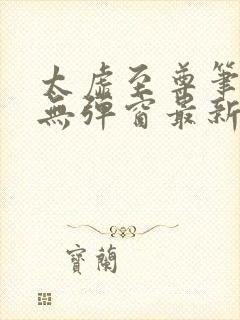 太虛至尊筆
無彈窗最新
寶蘭